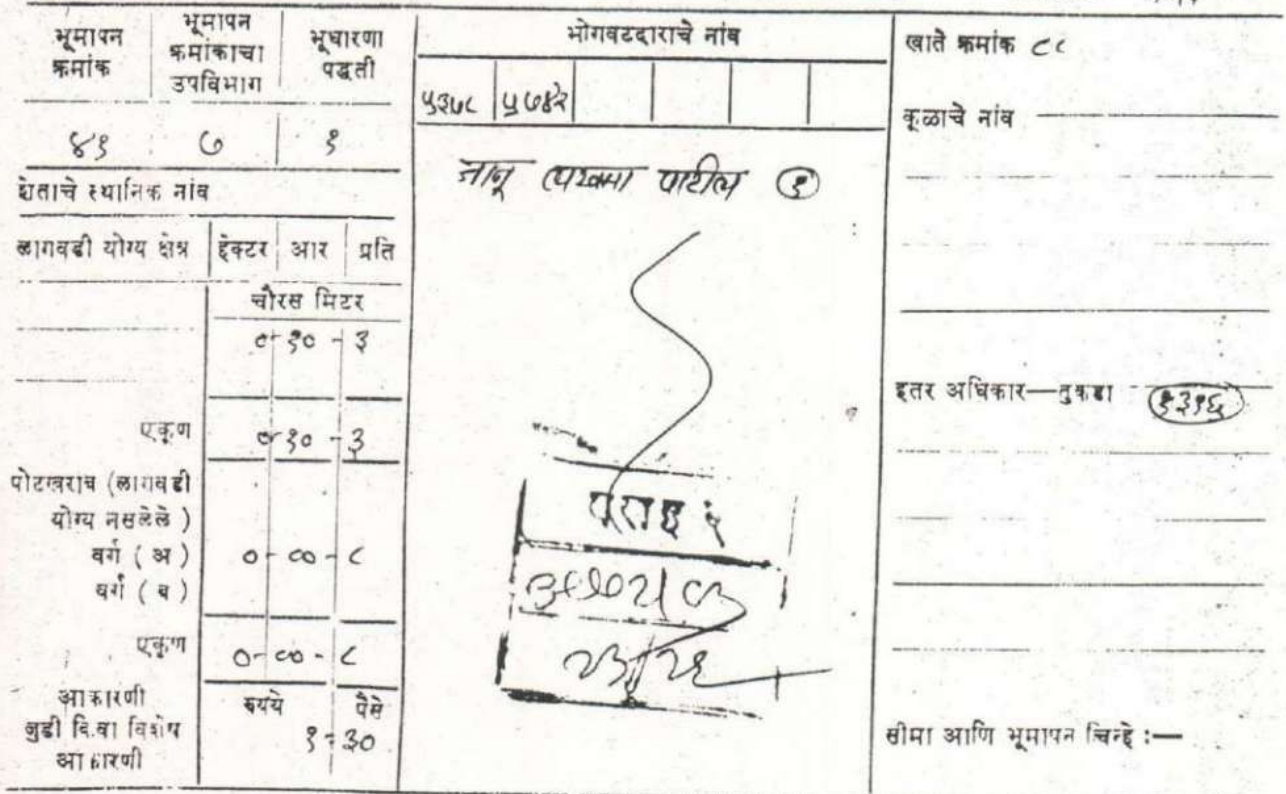 भूमापन क्रमांक
भूमापन क्रमांकाचा उपविभाग
भूधारणा पद्धती
४१
७
१
शेताचे स्थानिक नांव
लागवडी योग्य क्षेत्र
हेक्टर
आर
प्रति
चौरस मिटर
०-१०-३
एकूण
०-१०-३
पोटखराब (लागवडी
योग्य नसलेले)
वर्ग (अ)
०-००-८
वर्ग (ब)
एकूण
०-००-८
आकारणी
रुपये
पैसे
जुडी किंवा विशेष
१-३०
आकारणी
भोगवटदाराचे नांव
५३७८
५७४२
पाटील १
खाते क्रमांक ८८
कूळाचे नांव
इतर अधिकार—तुकडा १३१६
सीमा आणि भूमापन चिन्हे :—